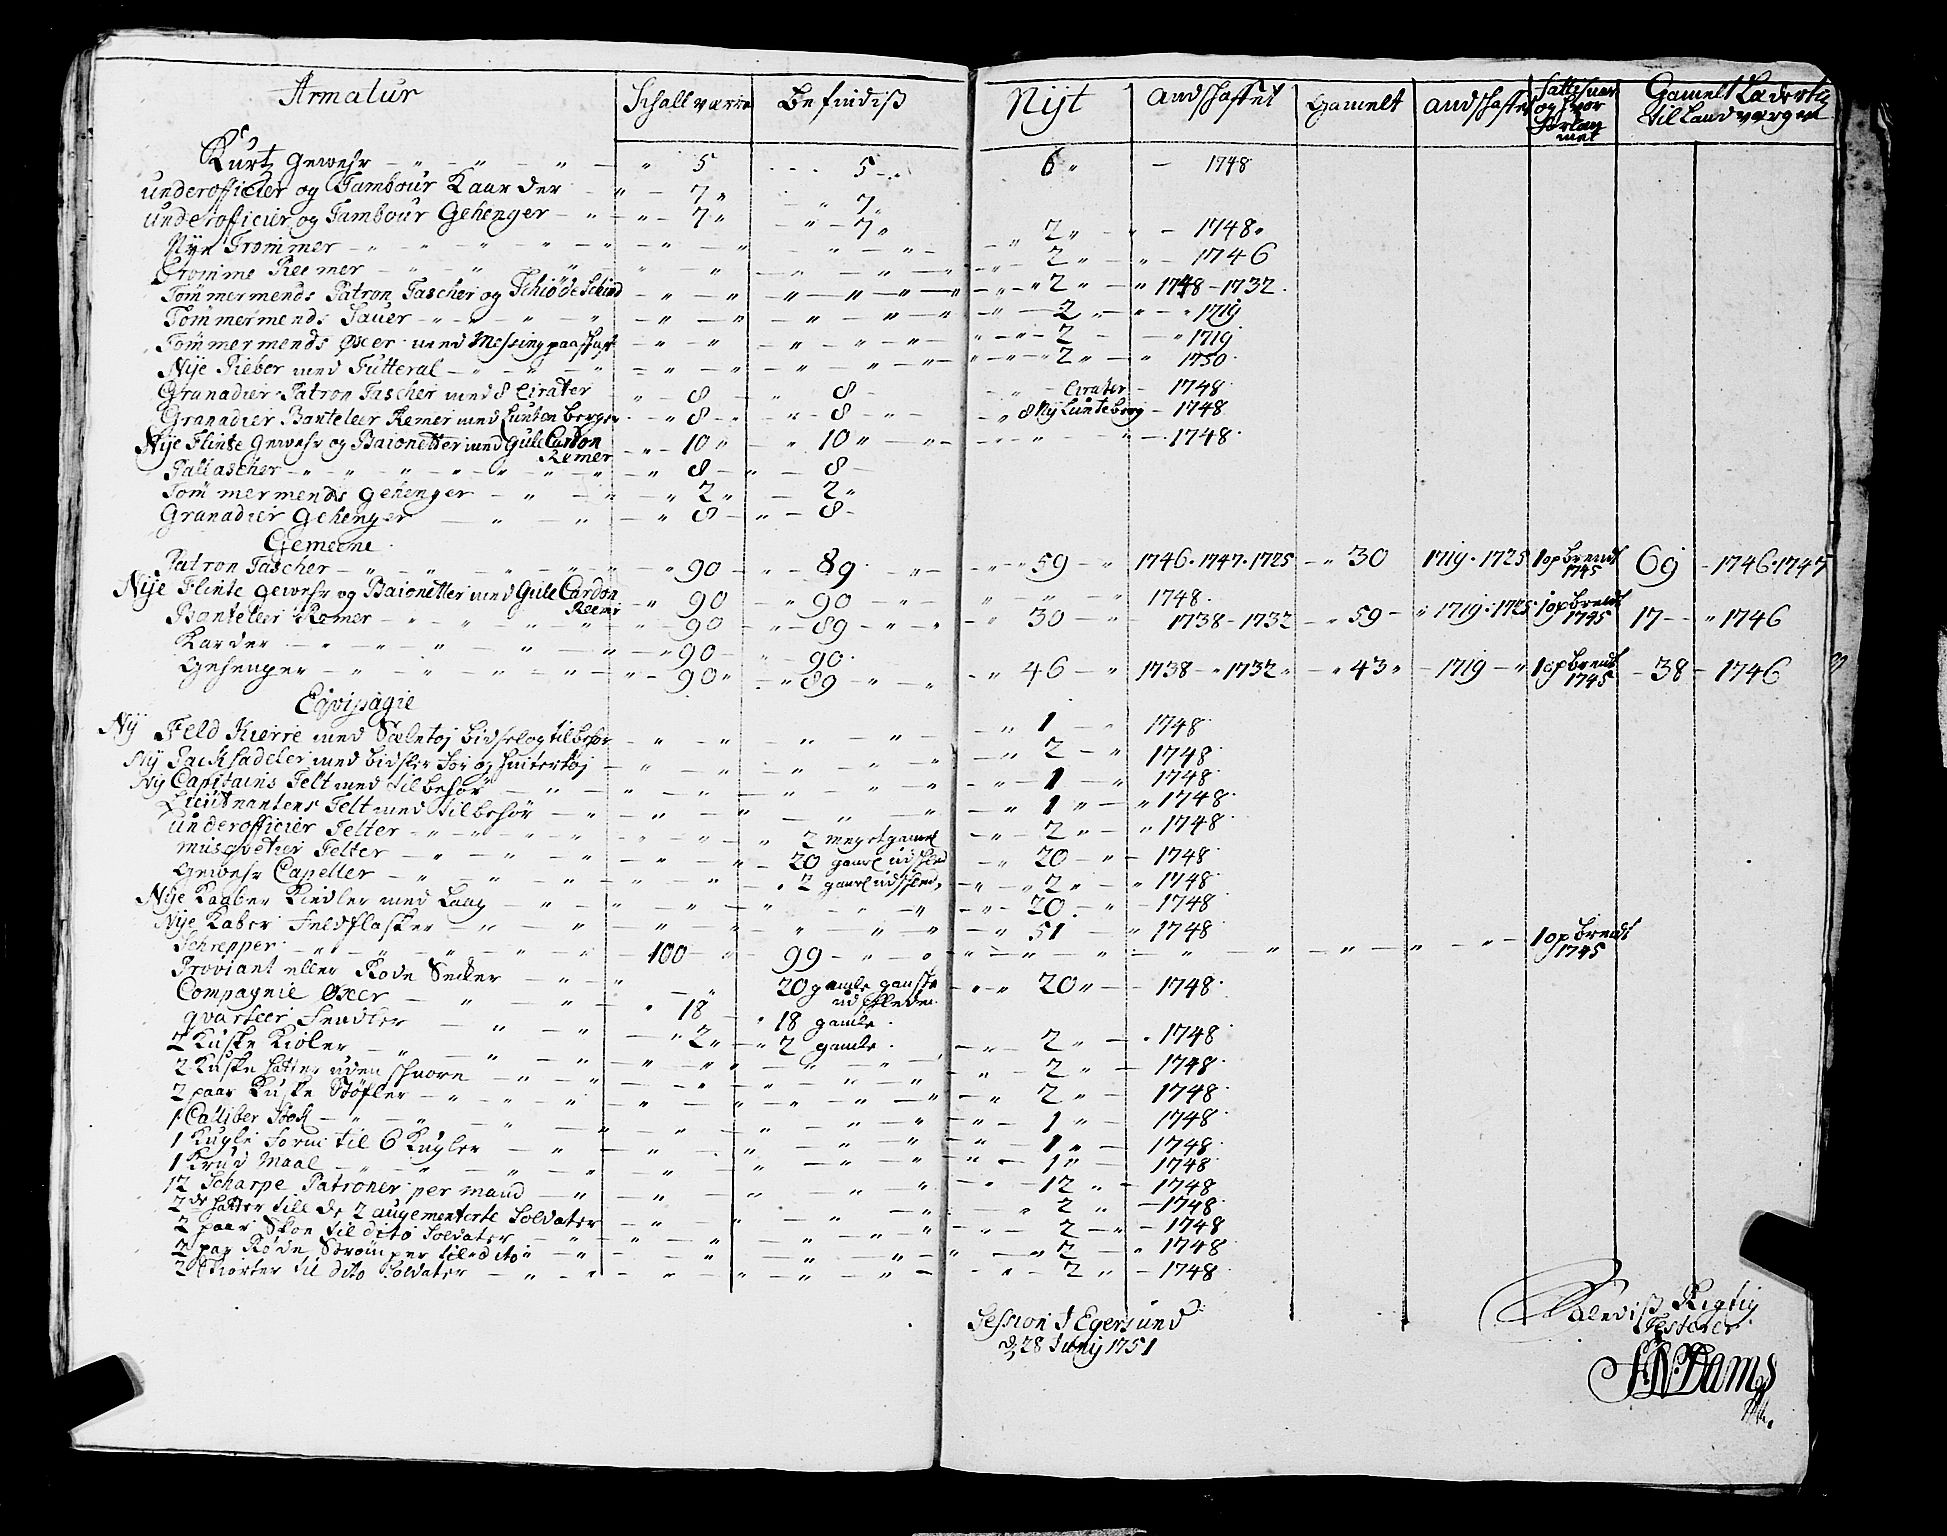 Armatur | Schall være | Befindis | Nÿt | Andschaffet | Gamelt | Andschaffet | Gamelt Lædertÿ til Landværgen
Kurtz Gewehr | 5 | 5 | 6 | 1748
Underofficier og Tambour Kaarder | 7 | 7
Underofficier og Tambour Gehenger | 7 | 7 | 2 | 1748
Nÿe Trommer | 2 | 1746
Tromme Reemer
Tömmermends Patron Tascher og | 2 | 1748-1732
Tömmermends Sauer | 2 | 1719
Tömmermends Øxer med Messing paa | 2 | 1719
Nÿe Pieber med Futteral | 2 | 1750
Granadier Patron Tascher med 8 Cirater | 8 | 8 | Cirater | 1748
Granadier Banteleer Remer med Lunten berger | 8 | 8 | 8 Nÿ Lunteberg | 1748
Nÿe Flinte Gewehr og Baionetter med Gule Cardon Remer | 10 | 10 | 1748
Pallascher | 8 | 8
Tömmermends Gehenger | 2 | 2
Granadier Gehenger | 8 | 8
Gemeene
Patron Tascher | 90 | 89 | 59 | 1746.1747.1725 | 30 | 1719.1725 | 1 opbrendt 1745 | 69 | 1746.1747
Nÿe Flinte Gewehr og Baionetter med Gule Cardon Reemer | 90 | 90 | 1748
Banteleer Remer | 90 | 89 | 30 | 1738-1732 | 59 | 1719.1725 | 1 opbrendt 1745 | 17 | 1746
Karder | 90 | 90
Gehenger | 90 | 89 | 46 | 1738-1732 | 43 | 1719 | 1 opbrendt 1745 | 38 | 1746
Eqvipagie
Nÿ Feld Kierre med Sæletøj Bidsel og tilbehør | 1 | 1748
Nÿ Packsadeler med bidsler for og hintertøj | 2 | 1748
Nÿ Capitains Telt med tilbehør | 1 | 1748
Lieutnantens Telt med tilbehör | 1 | 1748
Underofficier Telter | 2 meget gamel | 2 | 1748
Musqvetier Telter | 20 gaml udsled | 20 | 1748
Gewehr Capeller | 2 gaml udsled | 2 | 1748
Nÿe Kaaber Kiedler med Laag | 20 | 1748
Nÿe Kaber Feldflasker | 51 | 1748
Schrepper | 100 | 99 | 1 opbrendt 1745
Proviant eller Rode Secker | 20 gamle ganske udsleden | 20 | 1748
Compagnie Øxer | 18 | 18 gamle
qvarteer Fendler | 2 | 2 gamle
2 Kuske Kioler | 2 | 1748
2 Kuske Hatter uden Schnore | 2 | 1748
2 paar Kuske Støfler | 2 | 1748
1 Caliber Stok | 1 | 1748
1 Kugle Form til 6 Kugler | 1 | 1748
1 Krud Maal | 1 | 1748
12 Scharpe Patroner per mand | 12 | 1748
2de Hatter till de 2 augementerte Soldater | 2 | 1748
2 paar Skoe til dito Soldater | 2 | 1748
2 par Røde Strömper til dito | 2 | 1748
2 Skiorter til dito Soldater | 2 | 1748
Session I Egersund
d 28 Junÿ 1751
Rigtig
Testerer